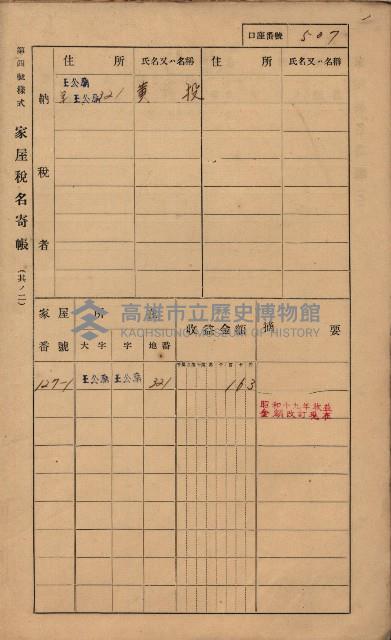 口座番號 507
第四號樣式
家屋稅名寄帳
(其ノ二)
納稅者
住所 氏名又ハ名稱 住所 氏名又ハ名稱
王公廟
王公廟321 黄
高雄市立歷史博物館
KAOHSIUNG MUSEUM OF HISTORY
家屋番號 所 大字 字 地番 收益金額 摘要
127-1 王公廟 王公廟 321 163
昭和十九年收益
金額改訂現在